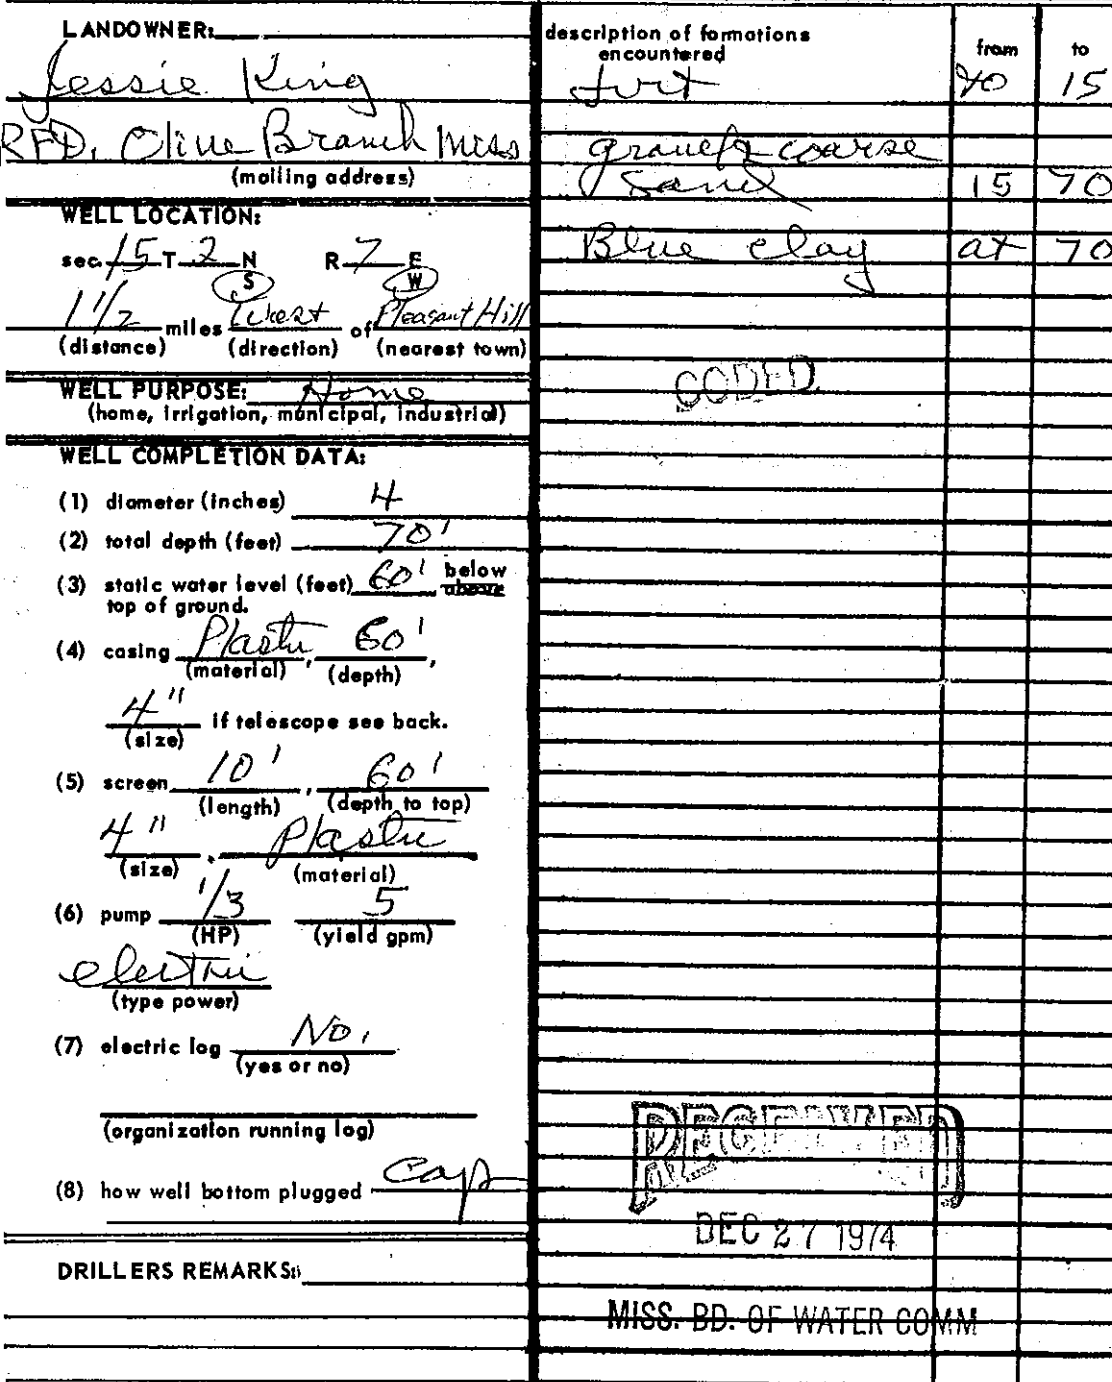 LANDOWNER:
Jessie King
RFD. Olive Branch Miss
(mailing address)
WELL LOCATION:
sec. 15 T 2 N S R 7 E W
1 1/2 miles West of Pleasant Hill
(distance) (direction) (nearest town)
WELL PURPOSE: Home
(home, irrigation, municipal, industrial)
WELL COMPLETION DATA:
(1) diameter (inches) 4
(2) total depth (feet) 70'
(3) static water level (feet) 60' below above
top of ground.
(4) casing Plastic, 60',
(material) (depth)
4" if telescope see back.
(size)
(5) screen 10', 60'
(length) (depth to top)
4", Plastic
(size) (material)
(6) pump 1/3 5
(HP) (yield gpm)
electric
(type power)
(7) electric log No.
(yes or no)
(organization running log)
(8) how well bottom plugged Cap
DRILLERS REMARKS:
description of formations
encountered from to
15
gravel & coarse
sand 15 70
Blue clay at 70
CODED
RECEIVED
DEC 27 1974
MISS. BD. OF WATER COMM